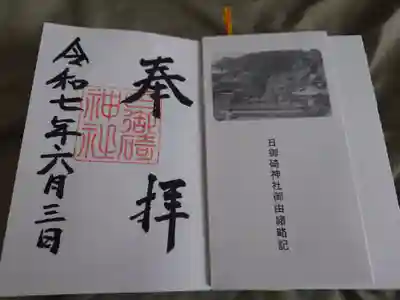 奉拝
日御碕
神社
令和七年六月三日
日御碕神社御由緒略記